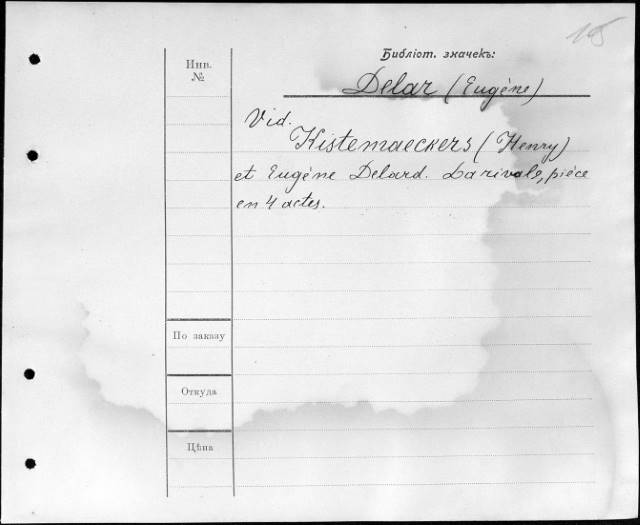 105
Библіот. значекъ:
Инв.
№
Delar (Eugène)
Vid.
Kistemaeckers (Henry)
et Eugène Delard. La rivale, pièce
en 4 actes.
По заказу
Откуда
Цѣна